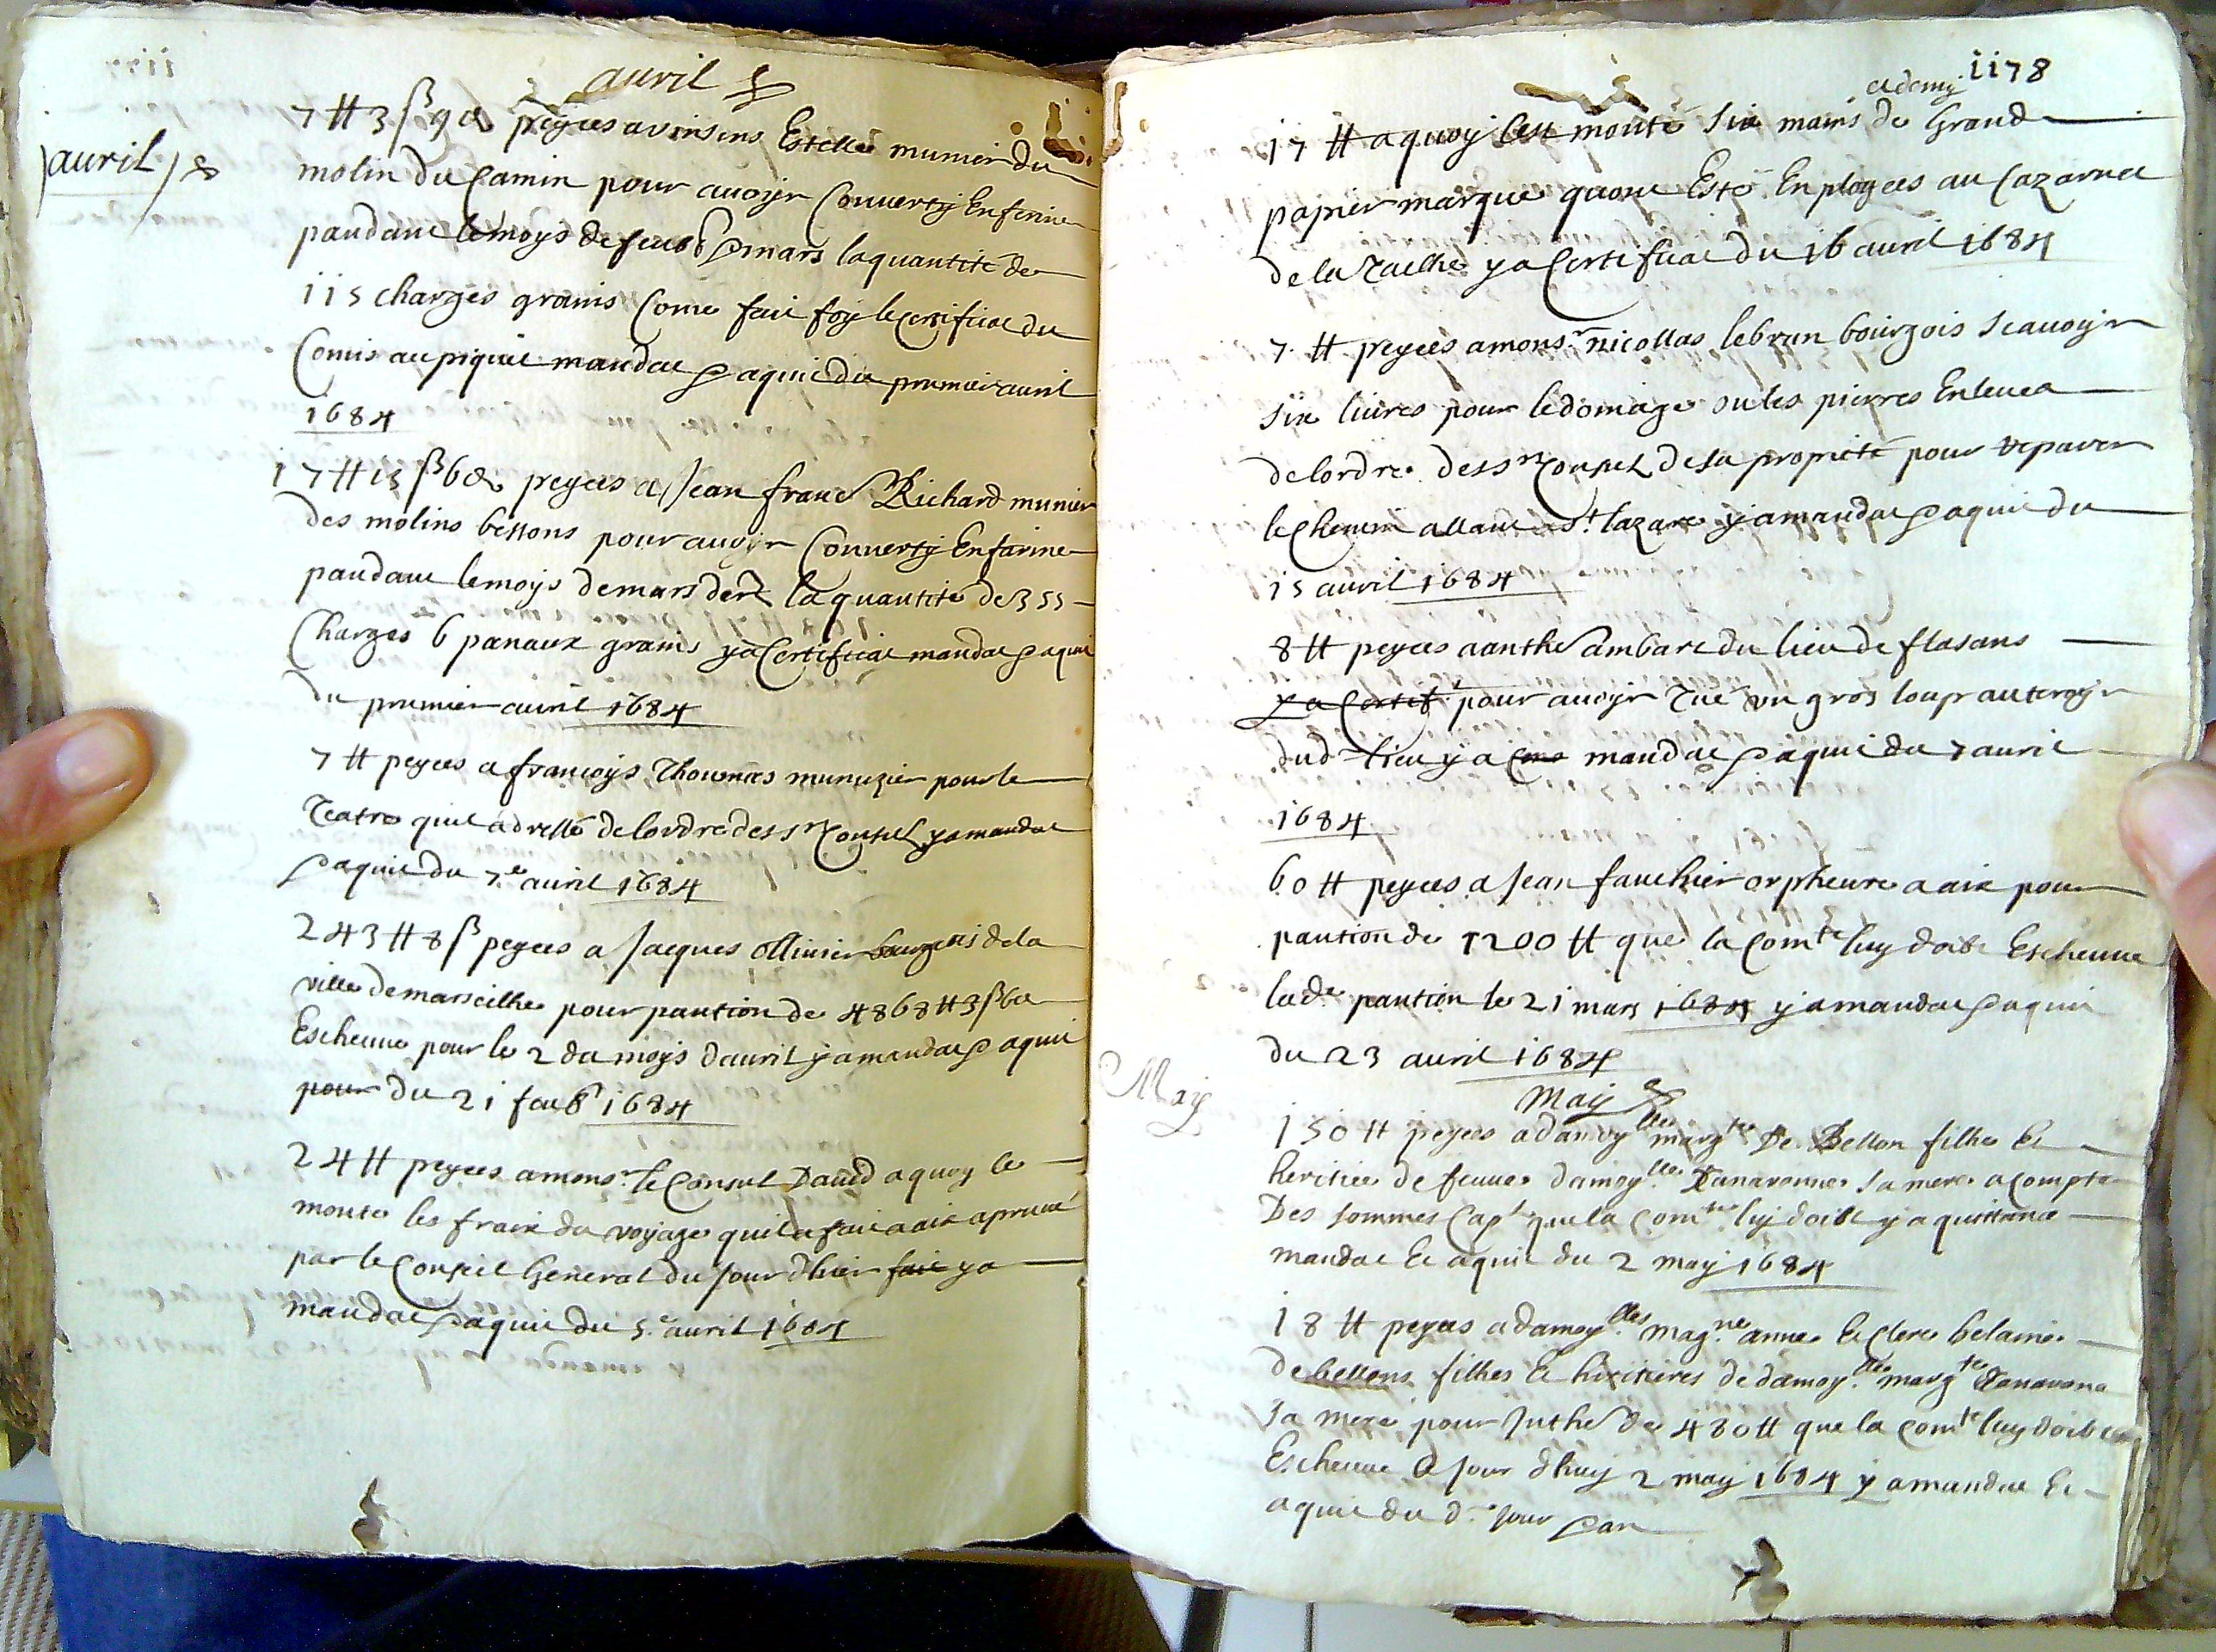 avril
avril
7 ₶ 3 ß 9 d peyees a vinsens Estelle munier du
molin du Camin pour avoyr Converty En farine
pandant le moys de feub.r & mars la quantité de
115 charges grains Come fait foy le certificat du
Comis au piquet mandat & aquit du prumier avril
1684
17 ₶ 15 ß 6 d peyees a Jean franc Richard munier
des molins bessons pour avoyr Converty En farine
pandant le moys de mars der.r la quantité de 355
Charges 6 panaux grains y a Certificat mandat & aquit
du prumier avril 1684
7 ₶ peyees a francoys Thoumas munuzier pour le
Teatre quil a dressé de lordre des srs Consuls y a mandat
& aquit du 7.e avril 1684
243 ₶ 8 ß peyees a Jacques Ollivier bourgeois de la
ville de marseilhe pour pantion de 4868 ₶ 3 ß 6 d
Escheue pour le 2 du moys davril y a mandat & aquit
pour du 21 feub.r 1684
24 ₶ peyees a mons.r le Consul David a quoy se
monte les fraix du voyage quil a fait a aix apruvé
par le Conseil General du Jour dhier fait y a
mandat & aquit du 5.e avril 1684
1178
et demy
17 ₶ a quoy sest monté six mains de Grand
papier marqué quont Esté Enployees au Cazarnet
de la Tailhe y a Certificat du 16 avril 1684
7 ₶ peyees a mons.r nicollas lebrun bourgois scavoyr
six livres pour le domage ou les pierres Enleuea
de lordre des srs Consuls de sa proprieté pour reparer
le Chemin allant a S.t lazare y a mandat & aquit du
15 avril 1684
8 ₶ peyees a anthe ambart du lieu de flasans
y a Certif pour avoyr Tué un gros loup au teroyr
dud lieu y a mandat & aquit du 7 avril
1684
60 ₶ peyees a Jean fauchier orpheure a aix pour
pantion de 1200 ₶ que la Com.té luy doibt Escheue
lad.e pantion le 21 mars 1684 y a mandat & aquit
du 23 avril 1684
May
May
150 ₶ peyees a damoy.lle marg.te De Bellon filhe Et
heritiere de feuue damoy.lle Tanaronne sa mere a compte
Des sommes Cap.les que la Com.té luy doibt y a quittance
mandat Et aquit du 2 may 1684
18 ₶ peyees a damoy.lles mag.ne anne Et Clere
de bellons filhes Et heritieres de damoy.lle marg.te Tanarone
sa mere pour Inthe de 480 ₶ que la Com.té luy doibt
Escheue a Jour dhuy 2 may 1684 y a mandat Et
aquit du d. Jour & an